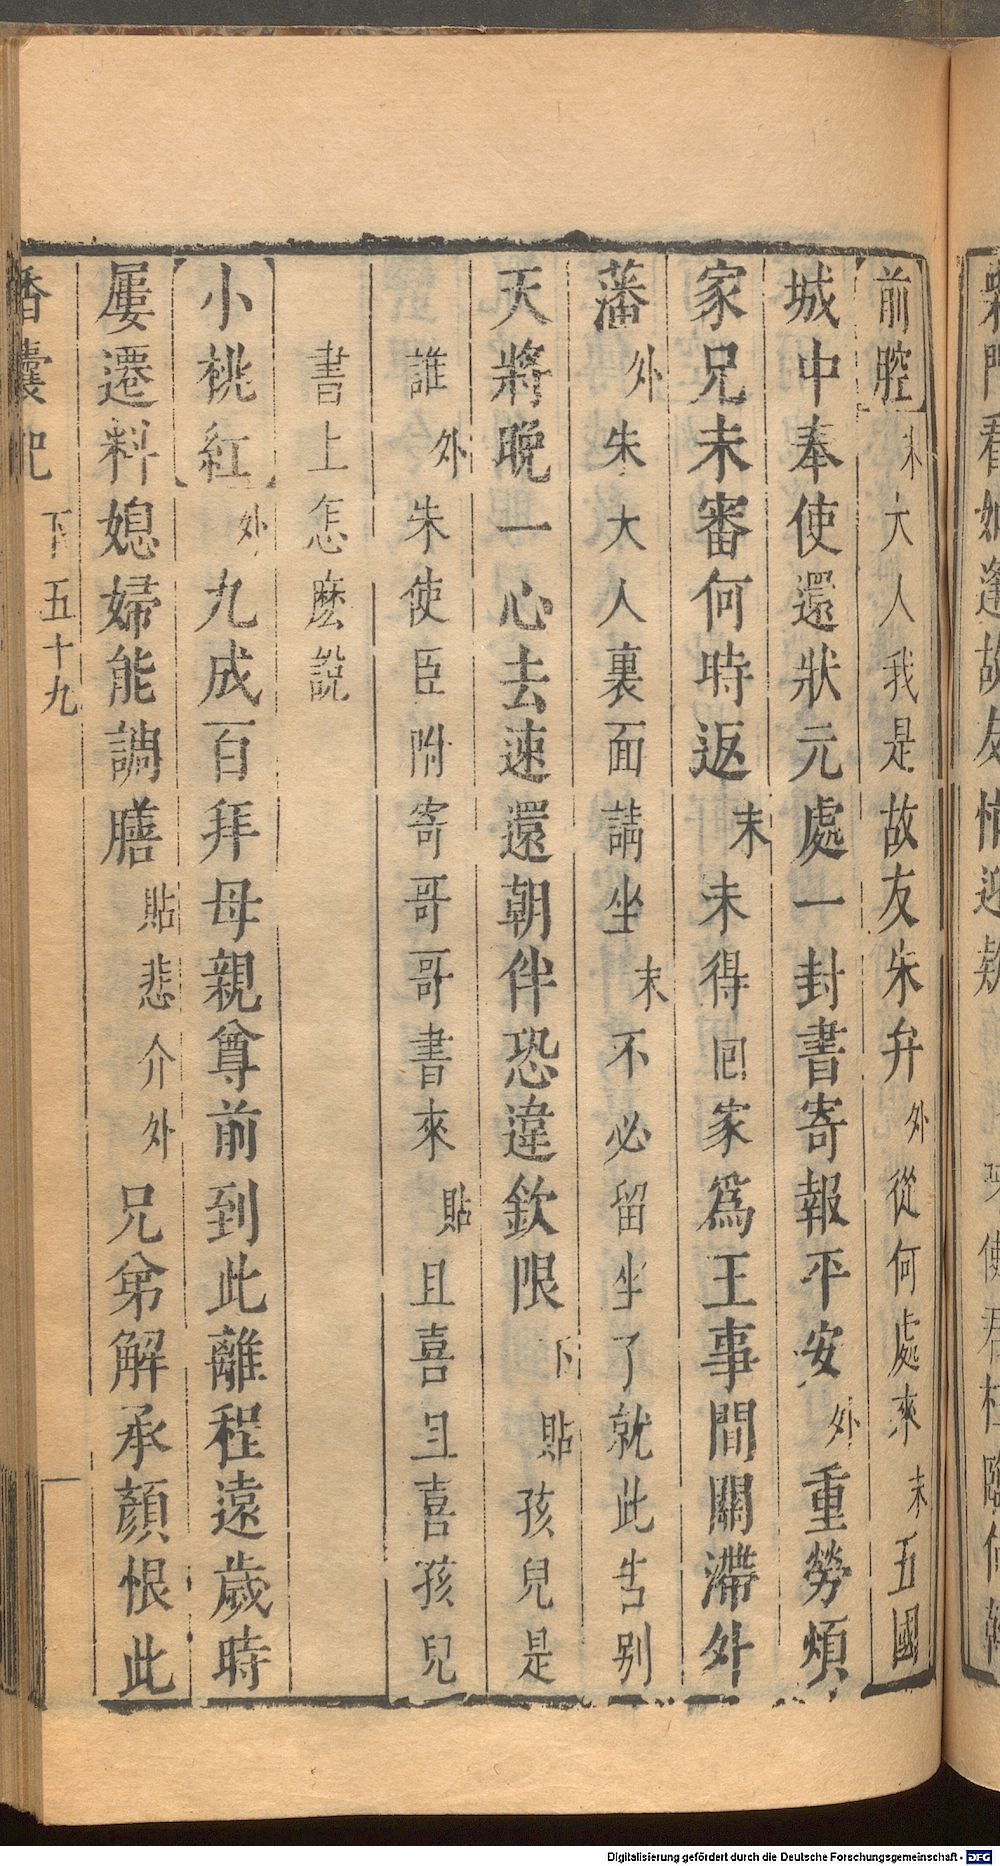 前腔末大人我是故友朱弁外從何處來末五國
城中奉使還狀元處一封書寄報平安外重勞煩
家兄未審何時返末未得回家爲王事間關滯外
藩外朱大人裏面請坐末不必留坐了就此告别
天將晚一心去速還朝伴恐違欽限下貼孩兒是
誰外朱使臣附寄哥哥書來貼且喜且喜孩兒
書上怎麽說
小桃紅外九成百拜母親尊前到此離程遠歲時
屢遷料媳婦能調膳貼悲介外兄弟解承顔恨此
香囊記 下 五十九
Digitalisierung gefördert durch die Deutsche Forschungsgemeinschaft - DFG